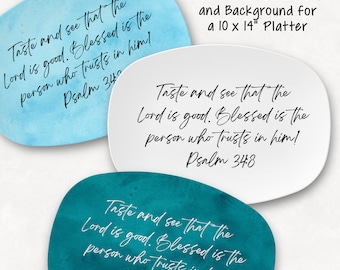 and Background for
a 10 x 14" Platter
Taste and see that the
Lord is good. Blessed is the
person who trusts in him!
Psalm 34:8
Taste and see that the
Lord is good. Blessed is the
person who trusts in him!
Psalm 34:8
Taste and see that the
Lord is good. Blessed is the
person who trusts in him!